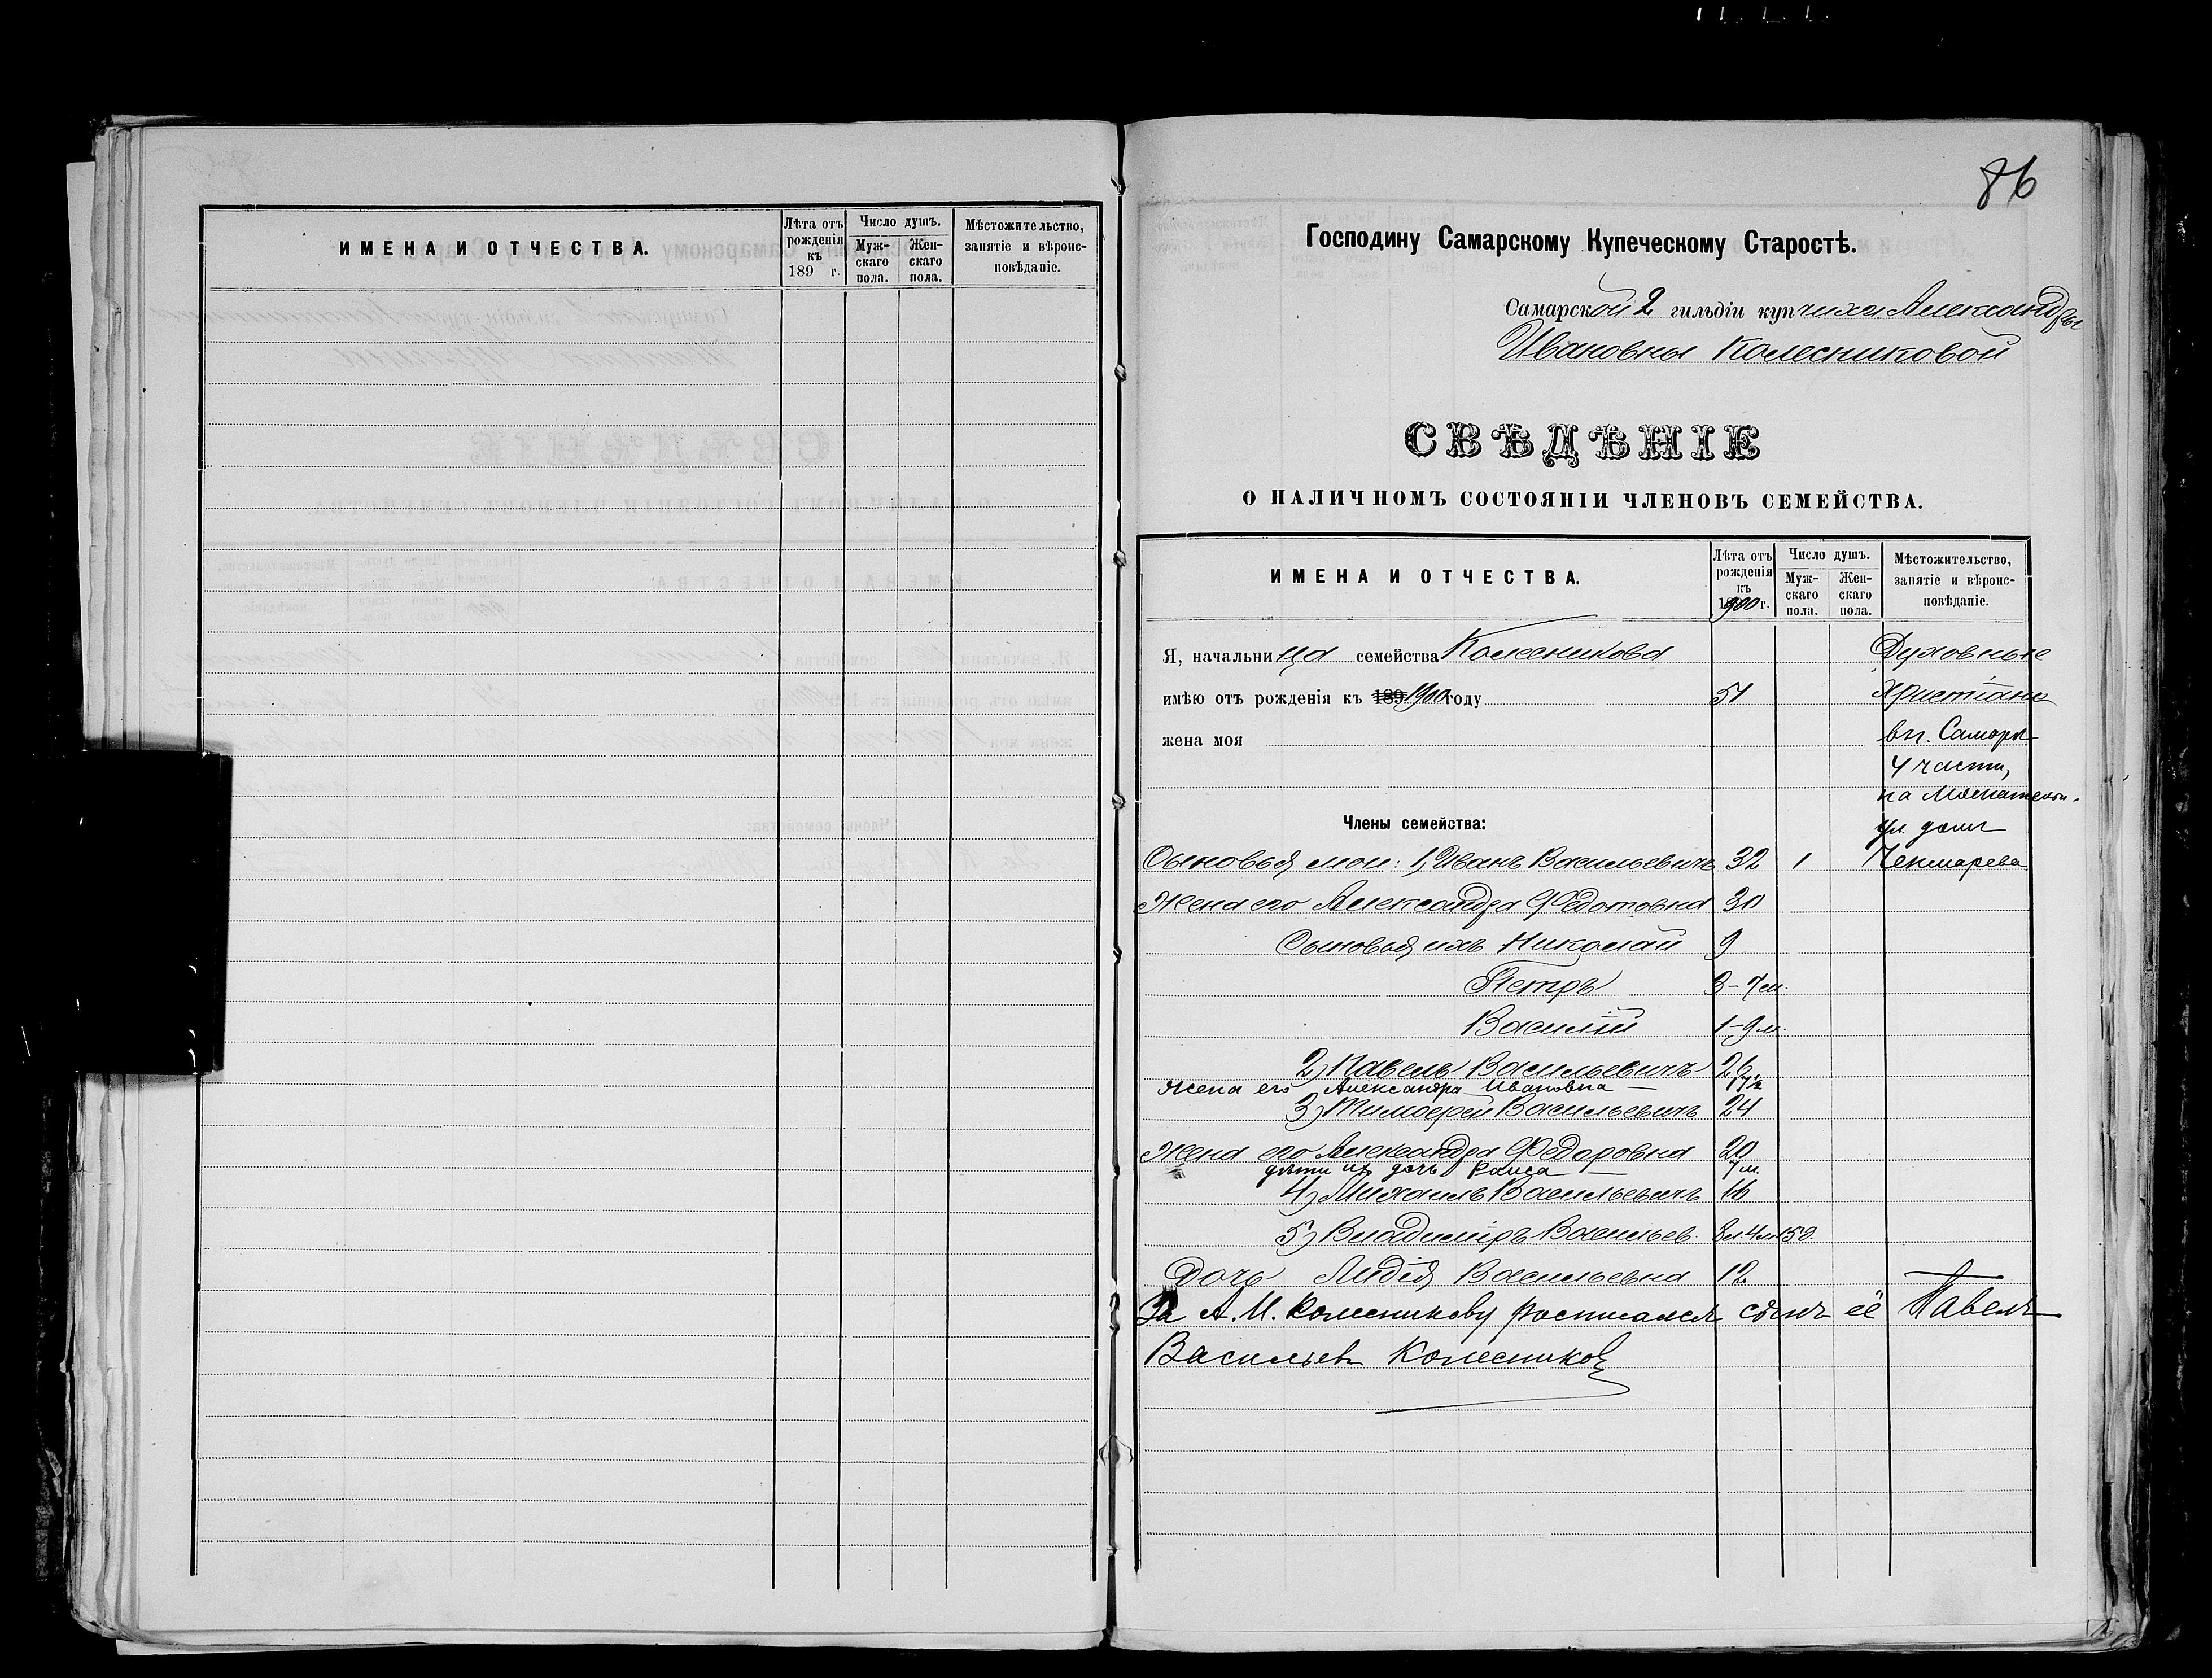 ИМЕНА И ОТЧЕСТВА.
Лѣта отъ рожденія къ 189 г.
Число душъ.
Мужскаго пола.
Женскаго пола.
Мѣстожительство, занятіе и вѣроисповѣданіе.
86
Господину Самарскому Купеческому Старостѣ.
Самарской 2 гильдіи купчихи Александры
Ивановны Колесниковой
СВѢДѢНІЕ
О НАЛИЧНОМЪ СОСТОЯНІИ ЧЛЕНОВЪ СЕМЕЙСТВА.
ИМЕНА И ОТЧЕСТВА.
Лѣта отъ рожденія къ 1900 г.
Число душъ.
Муж-скаго пола.
Жен-скаго пола.
Мѣстожительство, занятіе и вѣроис-повѣданіе.
Я, начальница семейства Колесникова Духовные
имѣю отъ рожденія къ 189 1900 году 51 Христіане
жена моя вг. Самарѣ
4 части,
на Москательн.
Члены семейства: ул. домъ
Сыновья мои: 1, Иванъ Васильевичъ 32 1 Чекмарева
Жена его Александра Федотовна 30
Сыновья ихъ Николай 9
Петръ 3-7м.
Василій 1-9м.
2) Павелъ Васильевичъ 26
Жена его Александра Ивановна —
3) Тимофей Васильевичъ 24
Жена его Александра Федоровна 20
дѣти их дочь Раиса — 7м.
4) Михаилъ Васильевичъ 16
5) Владиміръ Васильев. 8л.4м.15д.
Дочь Лидія Васильевна 12
За А. И. Колесникову росписался сынъ её Павелъ
Васильев Колесников